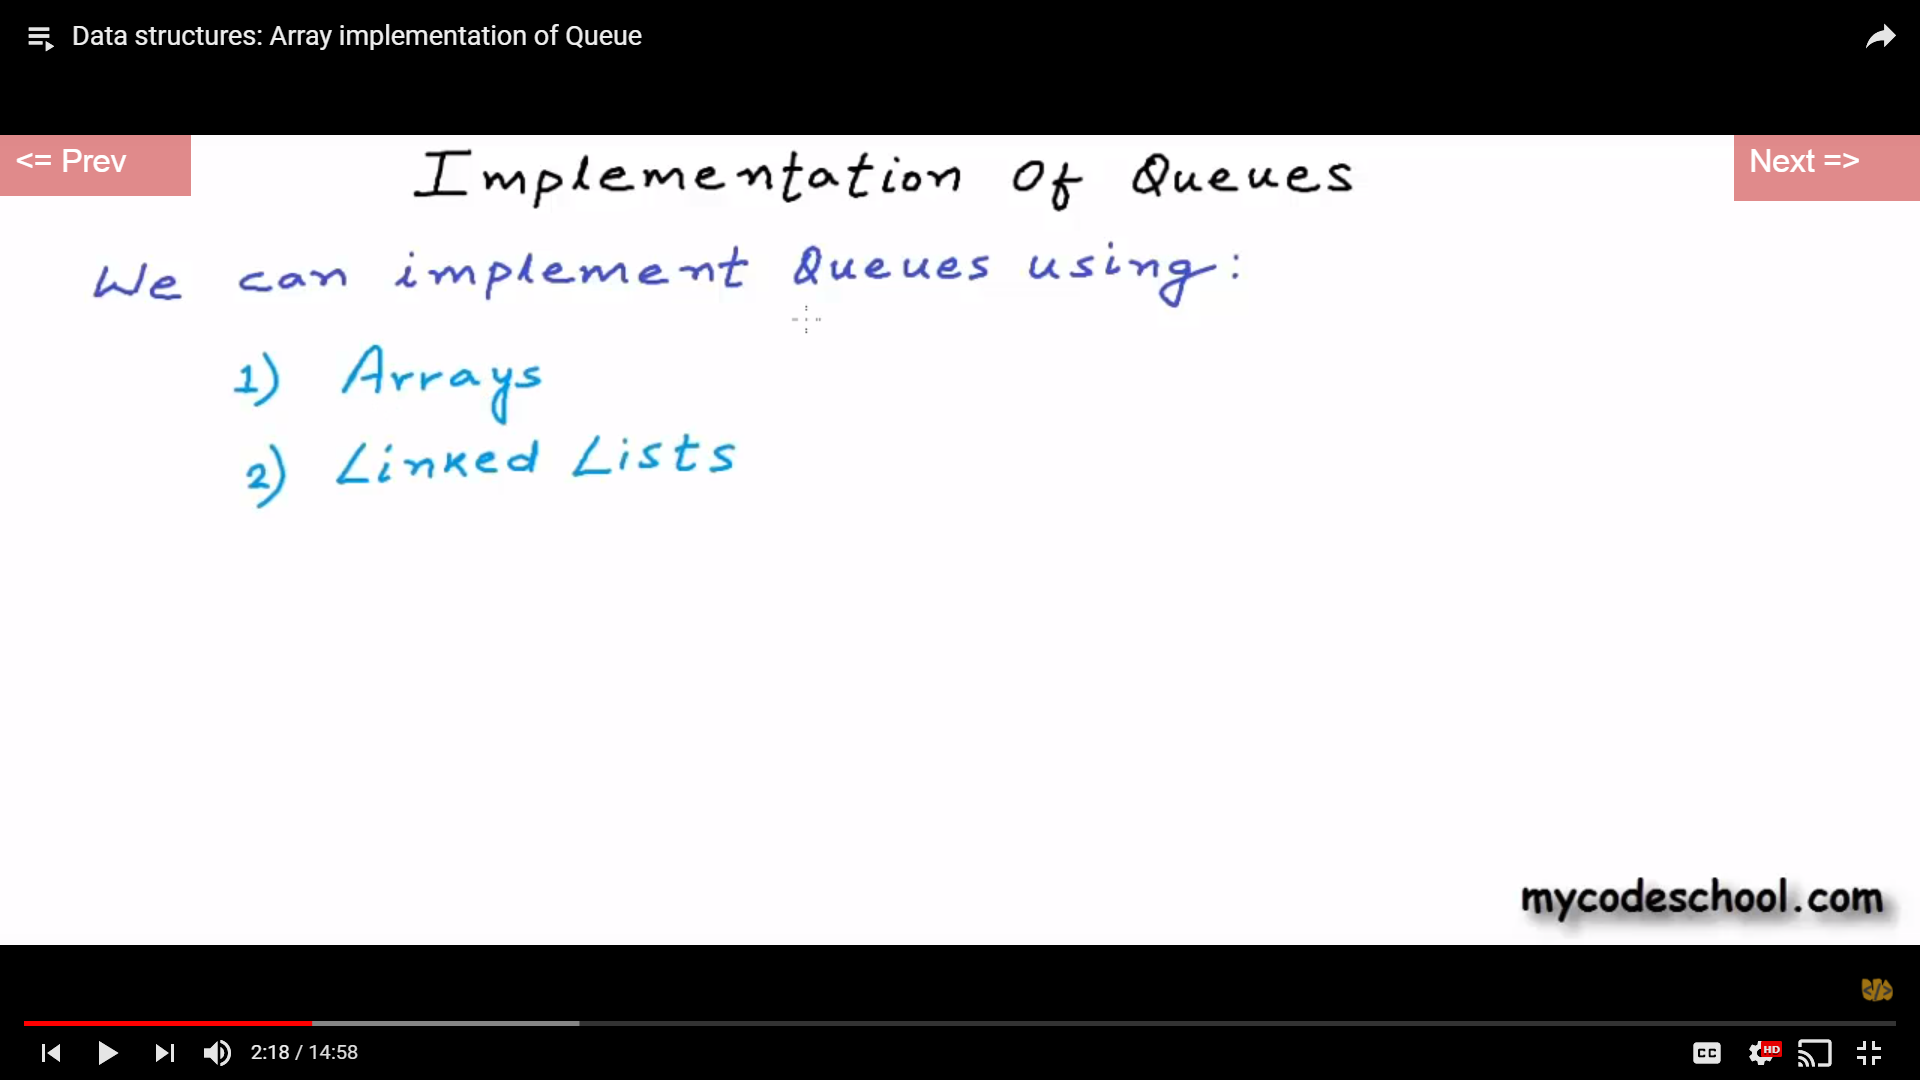 Data structures: Array implementation of Queue
<= Prev
Next =>
Implementation Of Queues
We can implement Queues using:
1) Arrays
2) Linked Lists
mycodeschool.com
</>
2:18 / 14:58
CC
HD